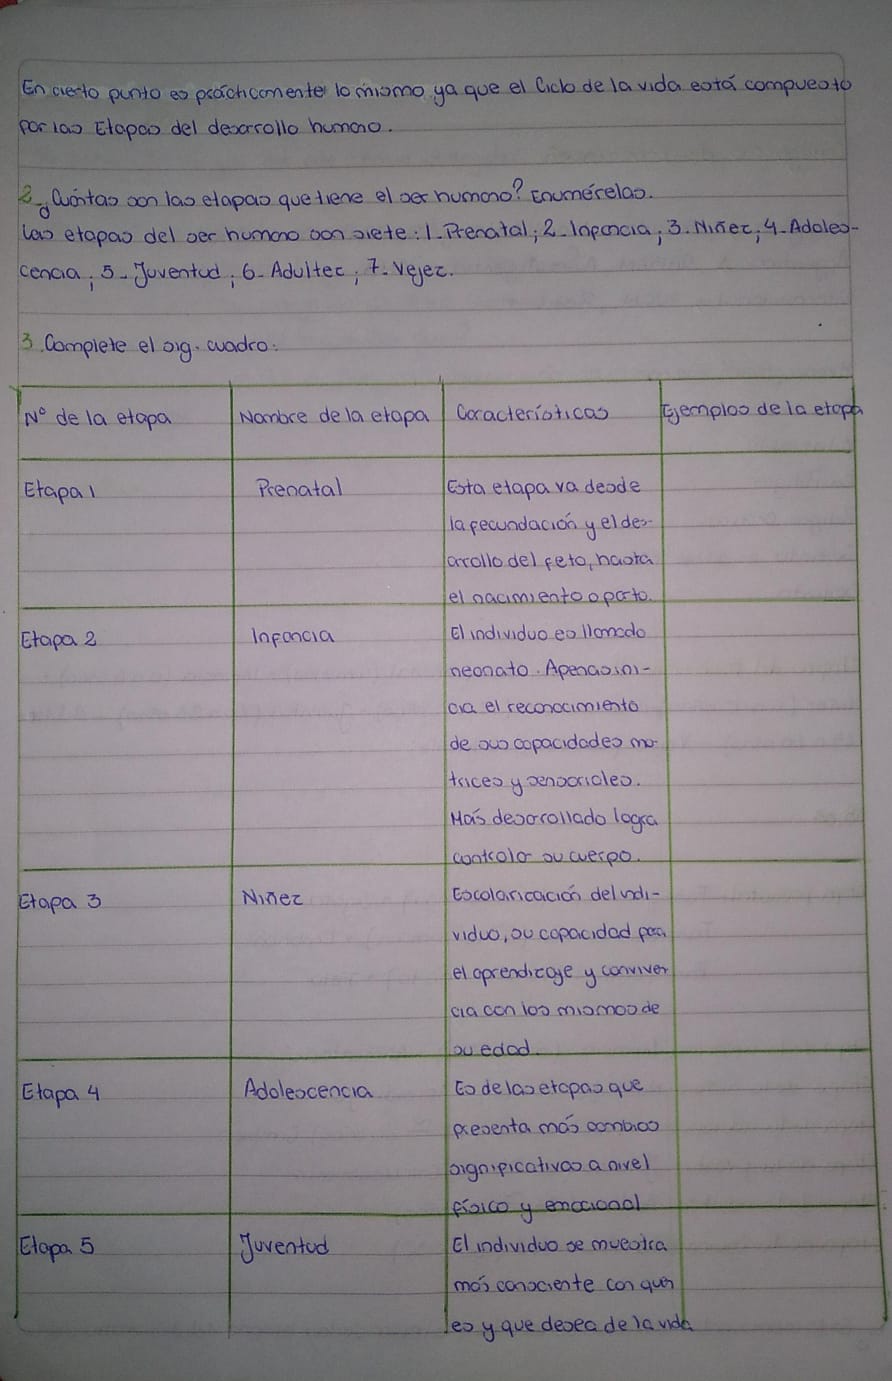 En cierto punto es prácticamente lo mismo ya que el Ciclo de la vida está compuesto
por las Etapas del desarrollo humano.
2- ¿Cuántas son las etapas que tiene el ser humano? Enumérelas.
Las etapas del ser humano son siete: 1- Prenatal; 2- Infancia; 3. Niñez; 4- Adoles-
cencia; 5- Juventud; 6- Adultez; 7- Vejez.
3. Complete el sig. cuadro:
Nº de la etapa Nombre de la etapa Características Ejemplos de la etapa
Etapa 1 Prenatal Esta etapa va desde
la fecundación y el des-
arrollo del feto, hasta
el nacimiento o parto.
Etapa 2 Infancia El individuo es llamado
neonato. Apenas ini-
cia el reconocimiento
de sus capacidades mo-
trices y sensoriales.
Más desarrollado logra
controlar su cuerpo.
Etapa 3 Niñez Escolarización del indi-
viduo, su capacidad para
el aprendizaje y conviven
cia con los mismos de
su edad.
Etapa 4 Adolescencia Es de las etapas que
presenta más cambios
significativos a nivel
físico y emocional
Etapa 5 Juventud El individuo se muestra
más consciente con quien
es y que desea de la vida